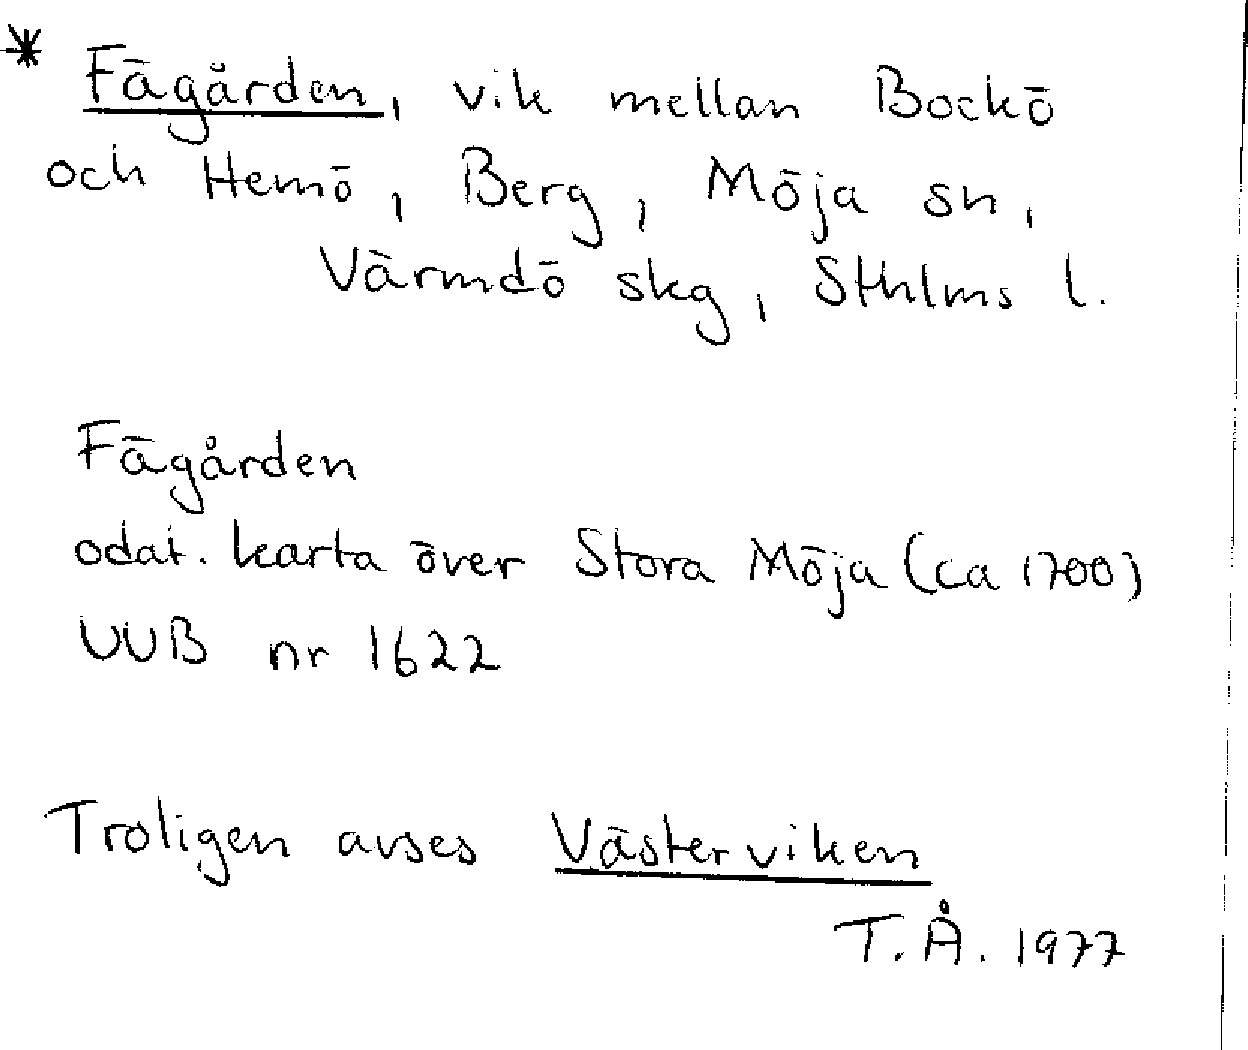 * Fägården, vik mellan Bockö
och Hemö, Berg, Möja sn,
Värmdö skg, Sthlms l.
Fägården
odat. karta över Stora Möja (ca 1700)
UUB nr 1622
Troligen avses Västerviken
T.Å. 1977